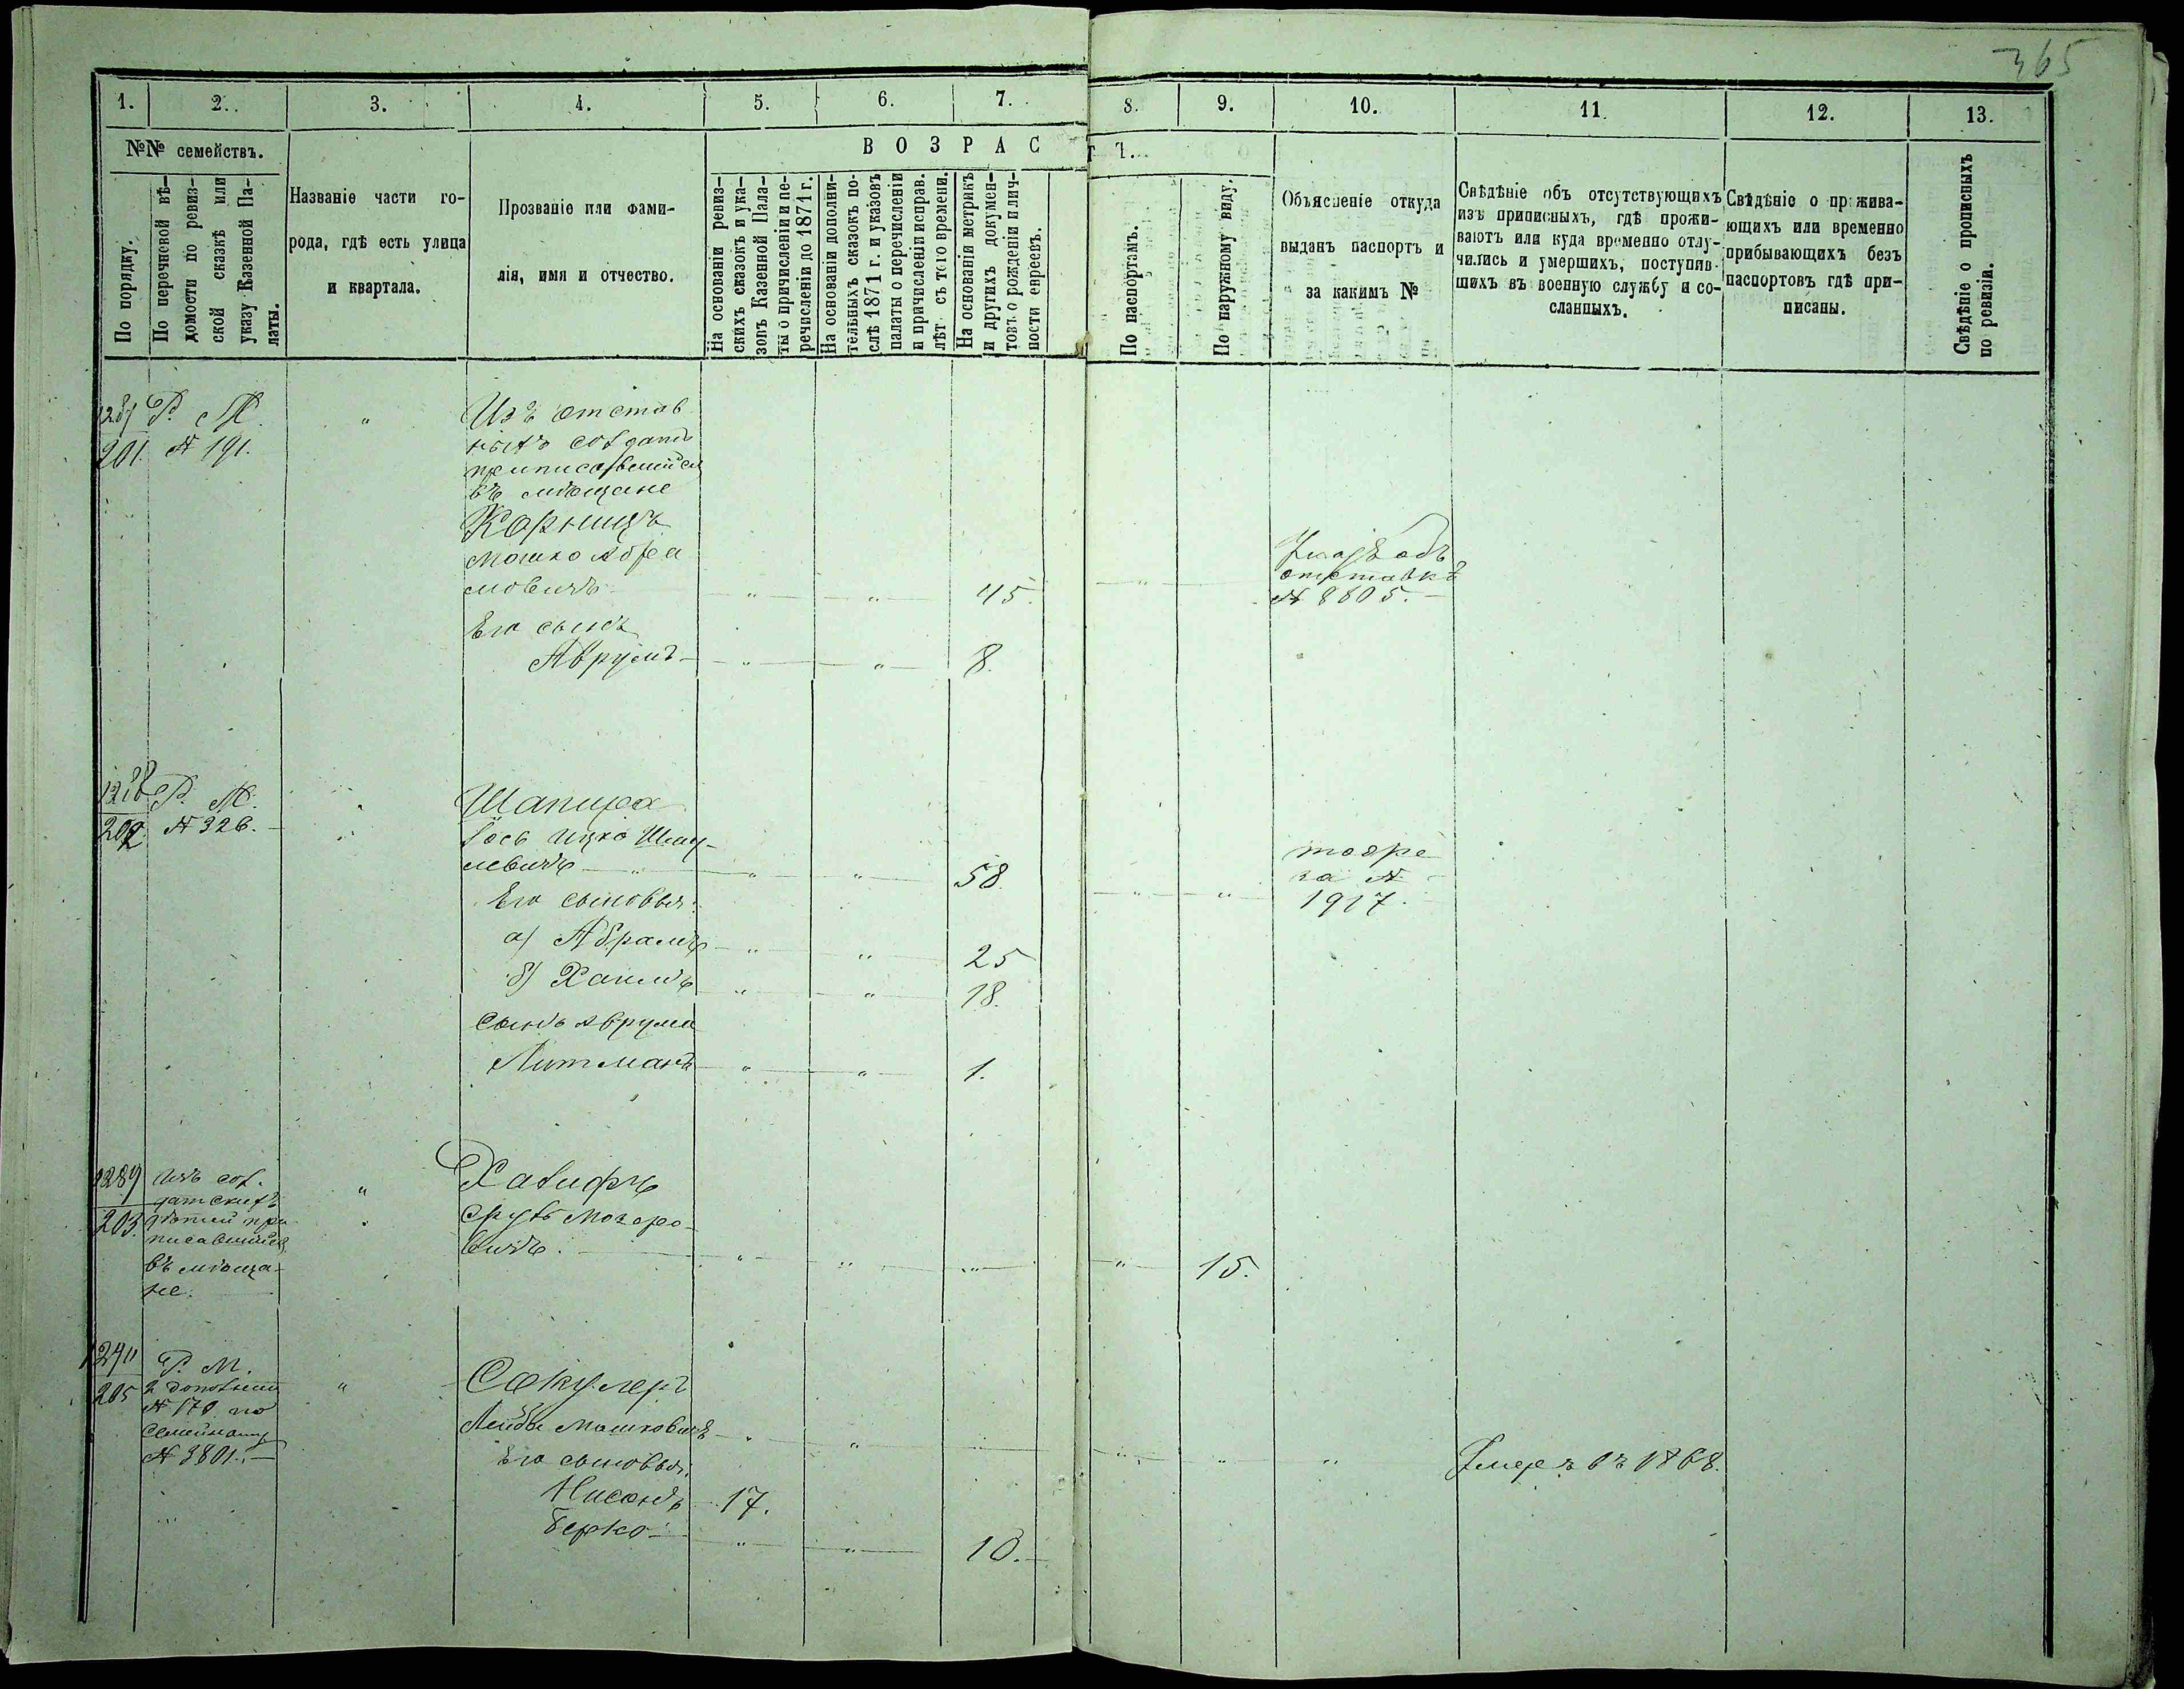 365
1. 2. 3. 4. 5. 6. 7. 8. 9. 10. 11. 12. 13.
№№ семействъ.
ВОЗРАСТЪ.
По порядку.
По перечневой вѣ-
домости по ревиз-
ской сказкѣ или
указу Казенной Па-
латы.
Названіе части го-
рода, гдѣ есть улица
и квартала.
Прозваніе или фами-
лія, имя и отчество.
На основаніи ревиз-
скихъ сказокъ и ука-
зовъ Казенной Пала-
ты о причисленіи и пе-
речисленіи до 1871 г.
На основаніи дополни-
тельныхъ сказокъ по-
слѣ 1871 г. и указовъ
палаты о перечисленіи
и причисленіи исправ.
лѣт съ того времени.
На основаніи метрикъ
и другихъ докумен-
товъ о рожденіи и лич-
ности евреевъ.
По паспортамъ.
По наружному виду.
Объясненіе откуда
выданъ паспортъ и
за какимъ №
Свѣдѣніе объ отсутствующихъ
изъ приписныхъ, гдѣ прожи-
ваютъ или куда временно отлу-
чились и умершихъ, поступив-
шихъ въ военную службу и со-
сланныхъ.
Свѣдѣніе о прожива-
ющихъ или временно
прибывающихъ безъ
паспортовъ гдѣ при-
писаны.
Свѣдѣніе о прописныхъ
по ревизіи.
1287 Р. М. " Изъ отстав
201. № 191. ныхъ солдатъ
приписавшійся
въ мѣщане
Корницъ
Мошко Абра
мовичъ " " 45. " Указъ объ
отставкѣ
№ 8805.
Его сынъ
Аврумъ " " 8.
1288 Р. М. " Шапира
202. № 326. Іось Ицко Шму-
левичъ " " 58. " " тоже
за №
1917.
Его сыновья:
а) Абрамъ " " 25
б) Хаимъ " " 18.
Сынъ Аврума
Литманъ " " 1.
1289 Изъ сол- " Халифъ
датскихъ
203. дѣтей при- Сруль Мозеро-
писавшійся вичъ. " " " " 15.
въ мѣща-
не.
1290 Р. М. " Сокулеръ
205 2 дополнит
№ 170 по
семейному Лейба Мошковичъ " " " " " Умеръ въ 1868.
№ 3801. Его сыновья:
Нисонъ 17.
Берко " " 10.